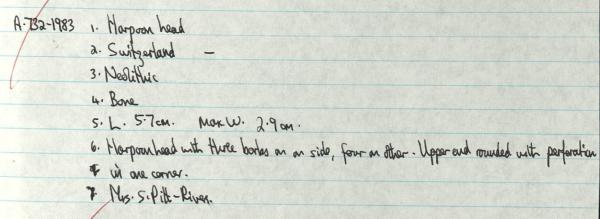 A.732-1983 1. Harpoon head
2. Switzerland –
3. Neolithic
4. Bone
5. L. 5.7cm. Max W. 2.9cm.
6. Harpoonhead with three barbs on on side, four on other. Upper end rounded with perforation
in one corner.
7 Mrs. S. Pitt-Rivers.